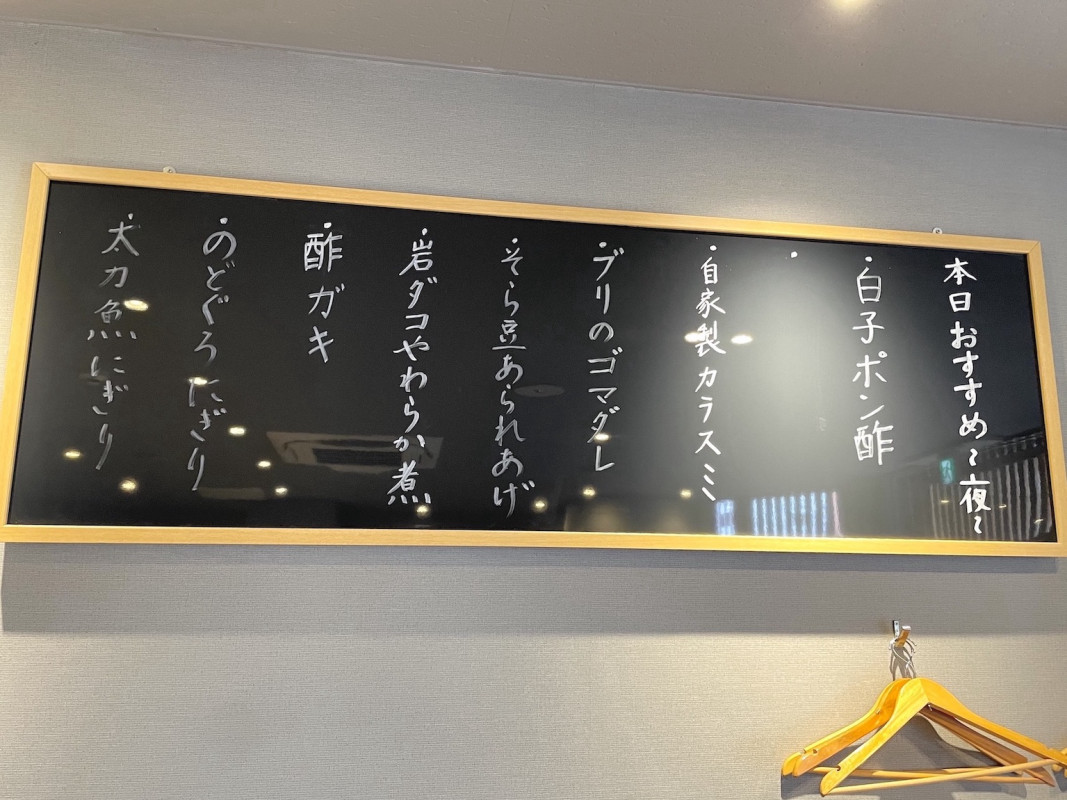 本日おすすめ～夜～
・白子ポン酢
・
・自家製カラスミ
・ブリのゴマダレ
・そら豆あられあげ
・岩ダコやわらか煮
・酢ガキ
・のどぐろにぎり
・太刀魚にぎり